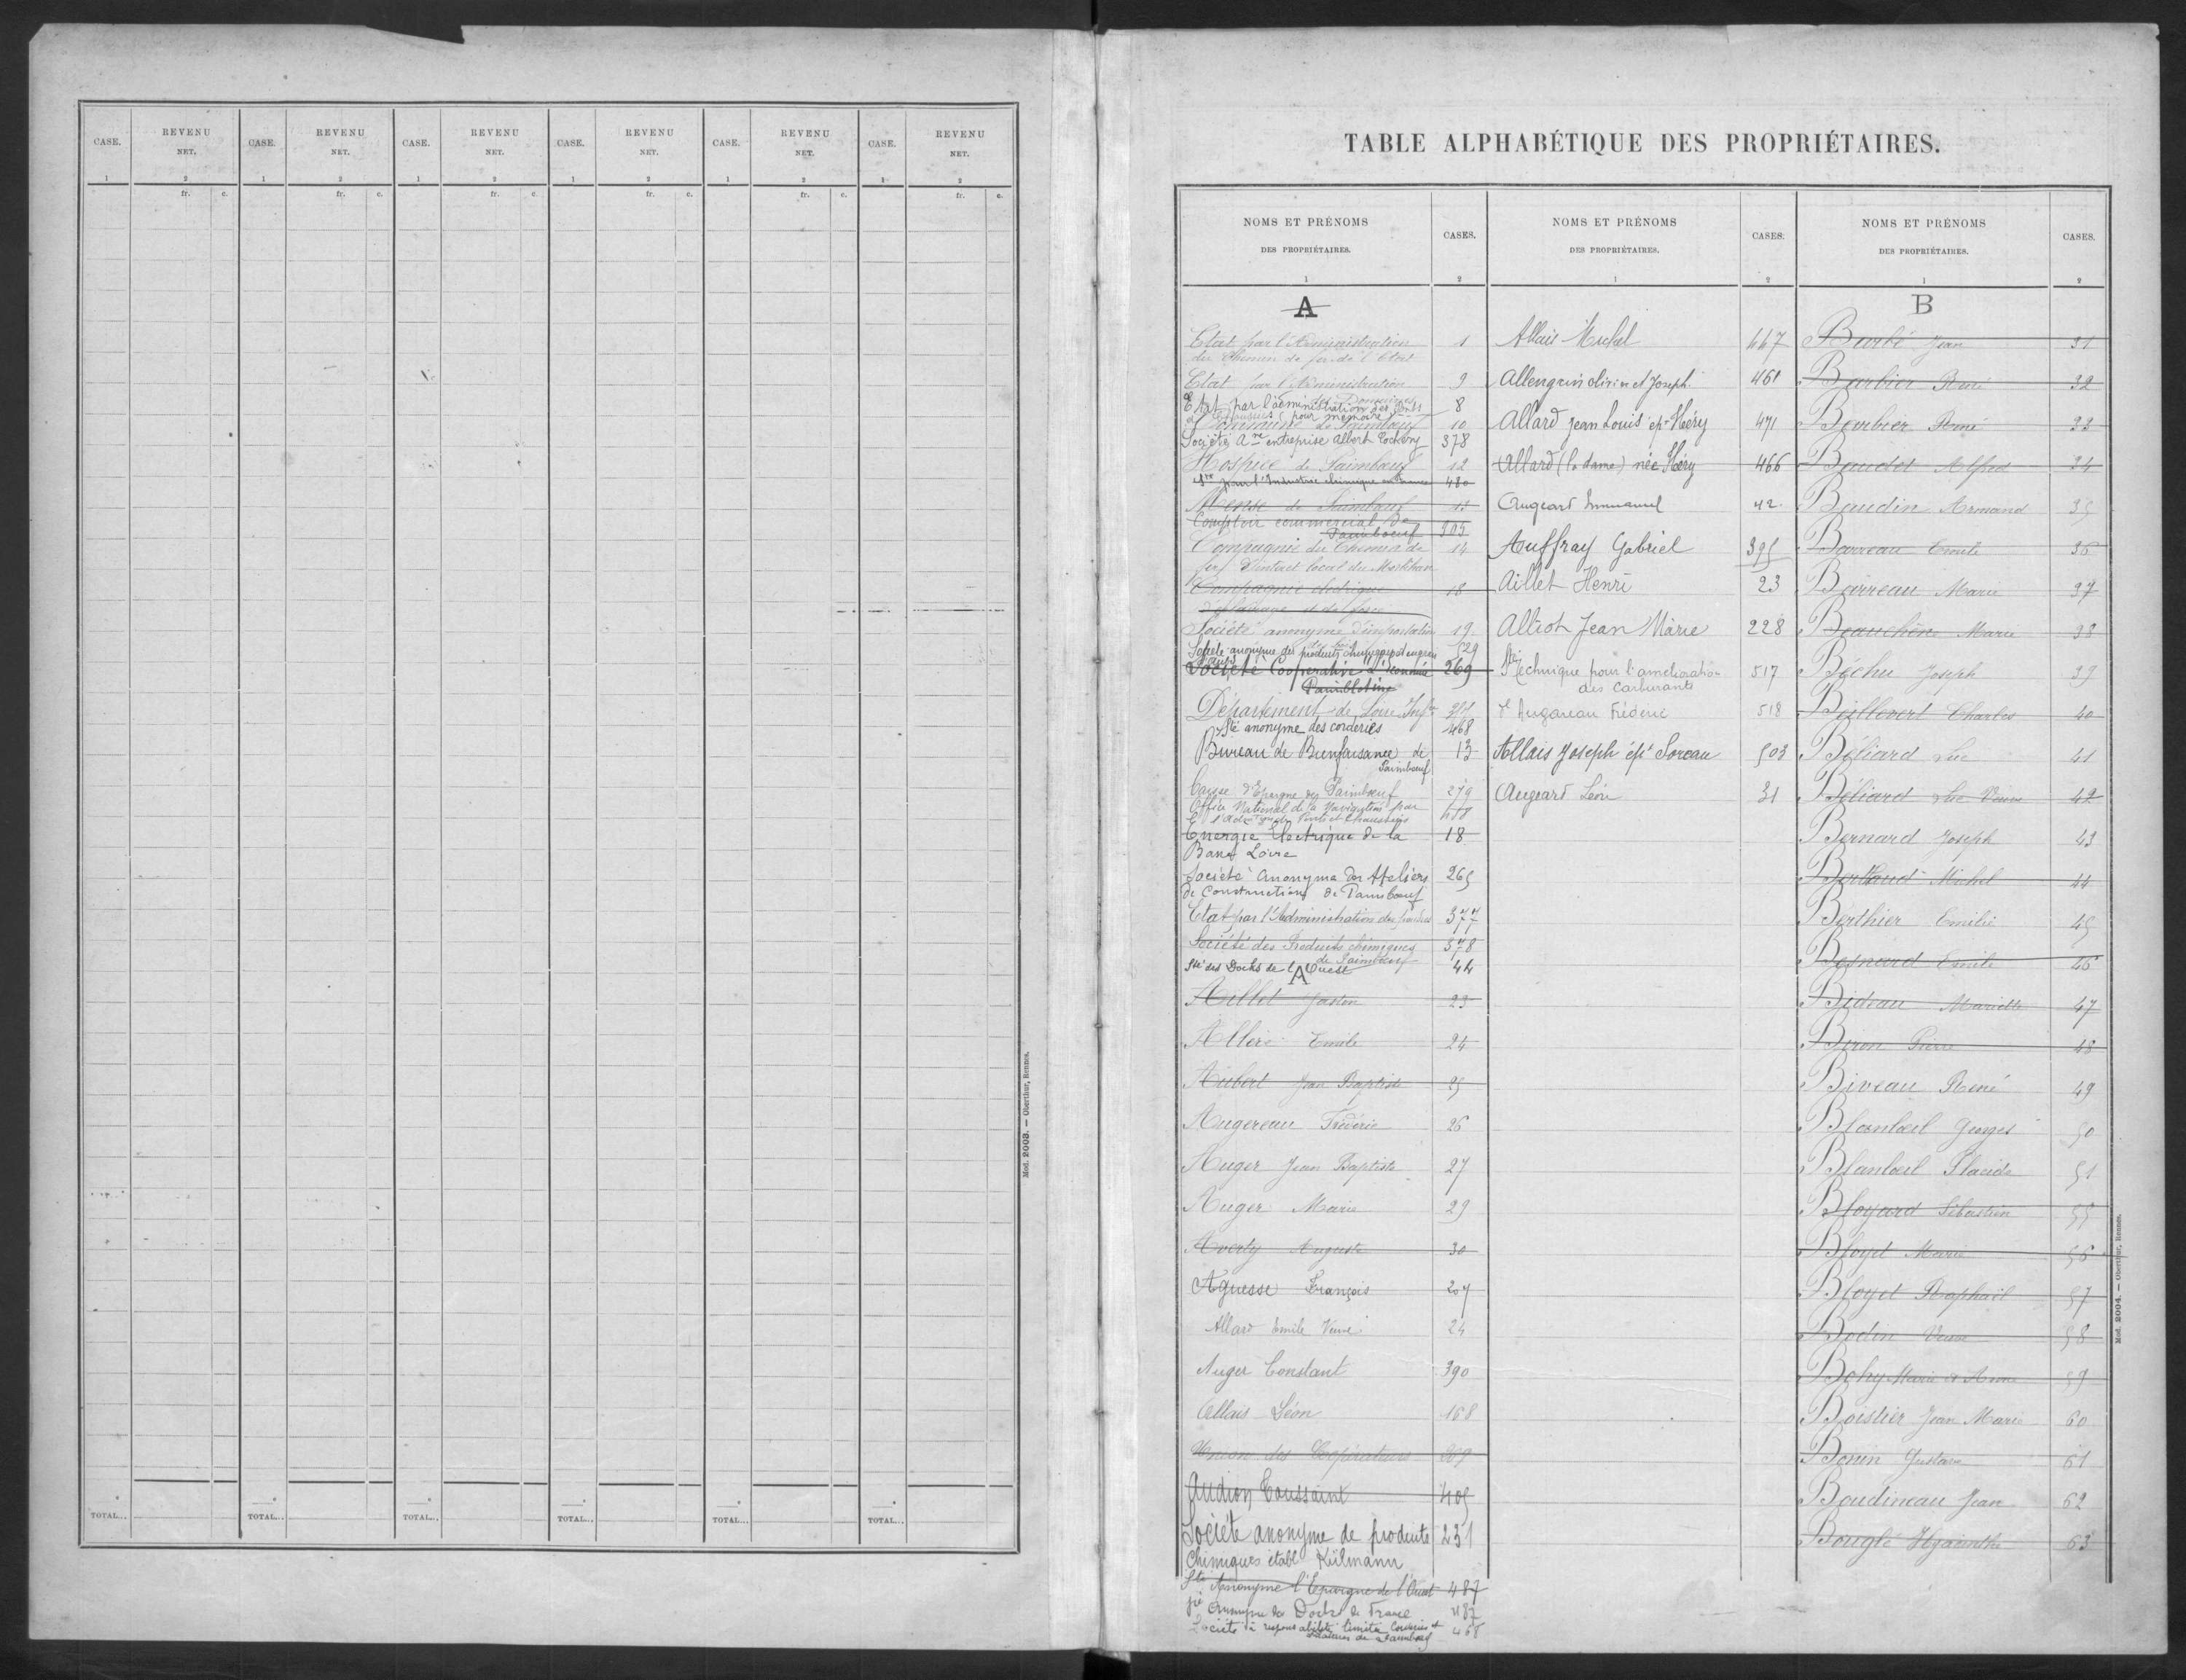 CASE. REVENU NET. CASE. REVENU NET. CASE. REVENU NET. CASE. REVENU NET. CASE. REVENU NET. CASE. REVENU NET.
1 2 1 2 1 2 1 2 1 2 1 2
fr. c. fr. c. fr. c. fr. c. fr. c. fr. c.
TOTAL... TOTAL... TOTAL... TOTAL... TOTAL... TOTAL...
Mod. 2003. — Oberthur, Rennes.
TABLE ALPHABÉTIQUE DES PROPRIÉTAIRES.
NOMS ET PRÉNOMS DES PROPRIÉTAIRES. CASES. NOMS ET PRÉNOMS DES PROPRIÉTAIRES. CASES. NOMS ET PRÉNOMS DES PROPRIÉTAIRES. CASES.
1 2 1 2 1 2
A
Etat par l'Administration 1
du Chemin de fer de l'Etat
Etat par l'Administration 9
des Domaines
Etat par l'administration des Ponts 8
et Chaussées (pour mémoire)
Commune de Paimboeuf 10
Société Ame entreprise Albert Cochery 378
Hospice de Paimboeuf 12
pour l'Industrie chimique en France 480
de Paimboeuf 13
Comptoir commercial de
Paimboeuf 305
Compagnie du Chemin de 14
fer d'intérêt local du Morbihan
Compagnie électrique 18
d'éclairage et de force
Société anonyme d'importation 19
Société anonyme des produits chimiques et engrais 529
Société Coopérative L'économie 269
Paimblotine
Département de Loire Infre
Sté anonyme des corderies 468
Bureau de Bienfaisance de 13
Paimboeuf
Caisse d'Epargne de Paimboeuf 279
Office National de la Navigation par
Ponts et Chaussées
Energie Electrique de la 18
Basse Loire
Société Anonyme des Ateliers 265
de Constructions de Paimboeuf
Etat par l'Administration des 377
Société des Produits chimiques 378
de Paimboeuf
Sté des Docks de l'Ouest 44
A
Aillet 23
Allère Emile 24
Aubert Jean Baptiste 25
Augereau Frédéric 26
Auger Jean Baptiste 27
Auger Marie 29
Averty Auguste 30
Aguesse François 207
Allard Emile Veuve 24
Auger Constant 390
Allais Léon 168
Union des Coopérateurs 209
Audion Toussaint 405
Société anonyme de produits 231
Chimiques établ Külmann
Sté Anonyme l'Epargne de l'Ouest 487
Sté Anonyme des Docks de France 487
Société à responsabilité limitée Corderies et 468
de Paimboeuf
Allais Michel 447
Allengrin olivier et Joseph 461
Allard Jean Louis ép. Héry 471
Allard (la dame) née Héry 466
Augeard Emmanuel 42
Auffray Gabriel 395
Aillet Henri 23
Alliot Jean Marie 228
Sté Technique pour l'amélioration 517
des Carburants
Augareau Frédéric 518
Allais Joseph épx Soreau 503
Augeard Léon 31
B
Barbé Jean 31
Barbier René 32
Barbier Aimé 33
Baudet Alfred 34
Baudin Armand 35
Barreau Emile 36
Barreau Marie 37
Beauchêne Marie 38
Béchu Joseph 39
Bellevert Charles 40
Béliard Luc 41
Béliard Luc Veuve 42
Bernard Joseph 43
Bertaud Michel 44
Berthier Emilie 45
Besnard Emile 46
Bideau Marielle 47
Biron Pierre 48
Biveau René 49
Blanloeil Georges 50
Blanloeil Placide 51
Bloyard Sébastien 55
Bloyet Marie 56
Bloyet Raphaël 57
Bodin Veuve 58
Bohy Marie et Anne 59
Boistier Jean Marie 60
Bonin Gustave 61
Boudineau Jean 62
Bouglé Hyacinthe 63
Mod. 2004. — Oberthur, Rennes.